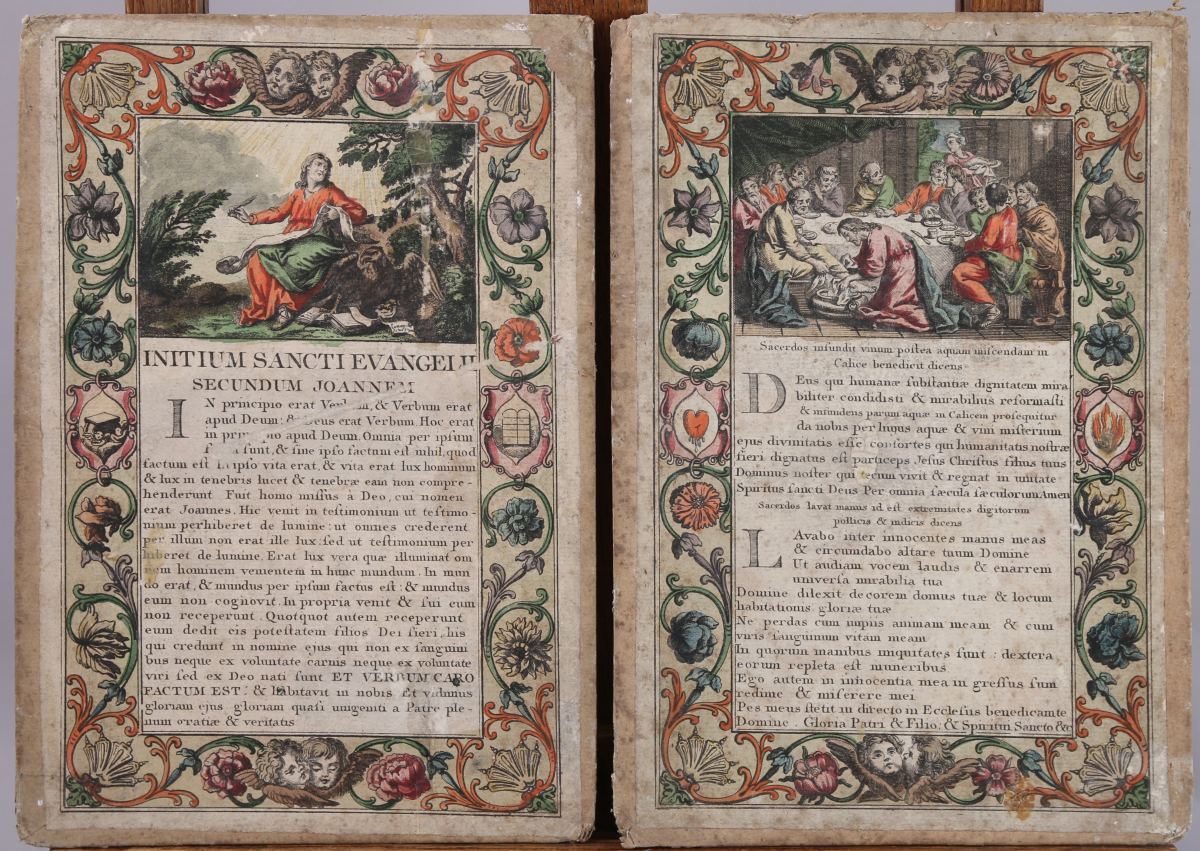 INITIUM SANCTI EVANGELII
SECUNDUM JOANNEM
IN principio erat Verbum, & Verbum erat
apud Deum: & Deus erat Verbum. Hoc erat
in principio apud Deum. Omnia per ipsum
facta sunt, & sine ipso factum est nihil, quod
factum est in ipso vita erat, & vita erat lux hominum
& lux in tenebris lucet & tenebræ eam non compre-
henderunt Fuit homo missus à Deo, cui nomen
erat Joannes. Hic venit in testimonium ut testimo-
nium perhiberet de lumine: ut omnes crederent
per illum non erat ille lux: sed ut testimonium per
hiberet de lumine. Erat lux vera quæ illuminat om
nem hominem venientem in hunc mundum. In mun
do erat, & mundus per ipsum factus est: & mundus
eum non cognovit. In propria venit & sui eum
non receperunt. Quotquot autem receperunt
eum dedit eis potestatem filios Dei fieri, his
qui credunt in nomine ejus qui non ex sangui
bus neque ex voluntate carnis neque ex voluntate
viri sed ex Deo nati sunt ET VERBUM CARO
FACTUM EST: & habitavit in nobis Et vidimus
gloriam ejus gloriam quasi unigeniti a Patre ple-
num gratiæ & veritatis
Sacerdos infundit vinum postea aquam miscendam in
Calice benedicit dicens
DEus qui humanæ substantiæ dignitatem mira
biliter condidisti & mirabilius reformasti
& infundens parum aquæ in Calicem prosequitur
da nobis per hujus aquæ & vini misterium
ejus divinitatis esse consortes qui humanitatis nostræ
fieri dignatus est particeps Jesus Christus filius tuus
Dominus noster qui tecum vivit & regnat in unitate
Spiritus sancti Deus Per omnia sæcula sæculorum Amen
Sacerdos lavat manus id est extremitates digitorum
pollicis & indicis dicens
LAvabo inter innocentes manus meas
& circumdabo altare tuum Domine
Ut audiam vocem laudis & enarrem
universa mirabilia tua
Domine dilexi decorem domus tuæ & locum
habitationis gloriæ tuæ
Ne perdas cum impiis animam meam & cum
viris sanguinum vitam meam
In quorum manibus iniquitates sunt: dextera
eorum repleta est muneribus
Ego autem in innocentia mea in gressus sum
redime & miserere mei
Pes meus stetit in directo in Ecclesiis benedicamte
Domine. Gloria Patri & Filio, & Spiritui Sancto &c